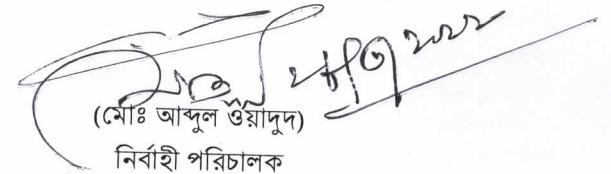 (মোঃ আব্দুল ওয়াদুদ)
নির্বাহী পরিচালক